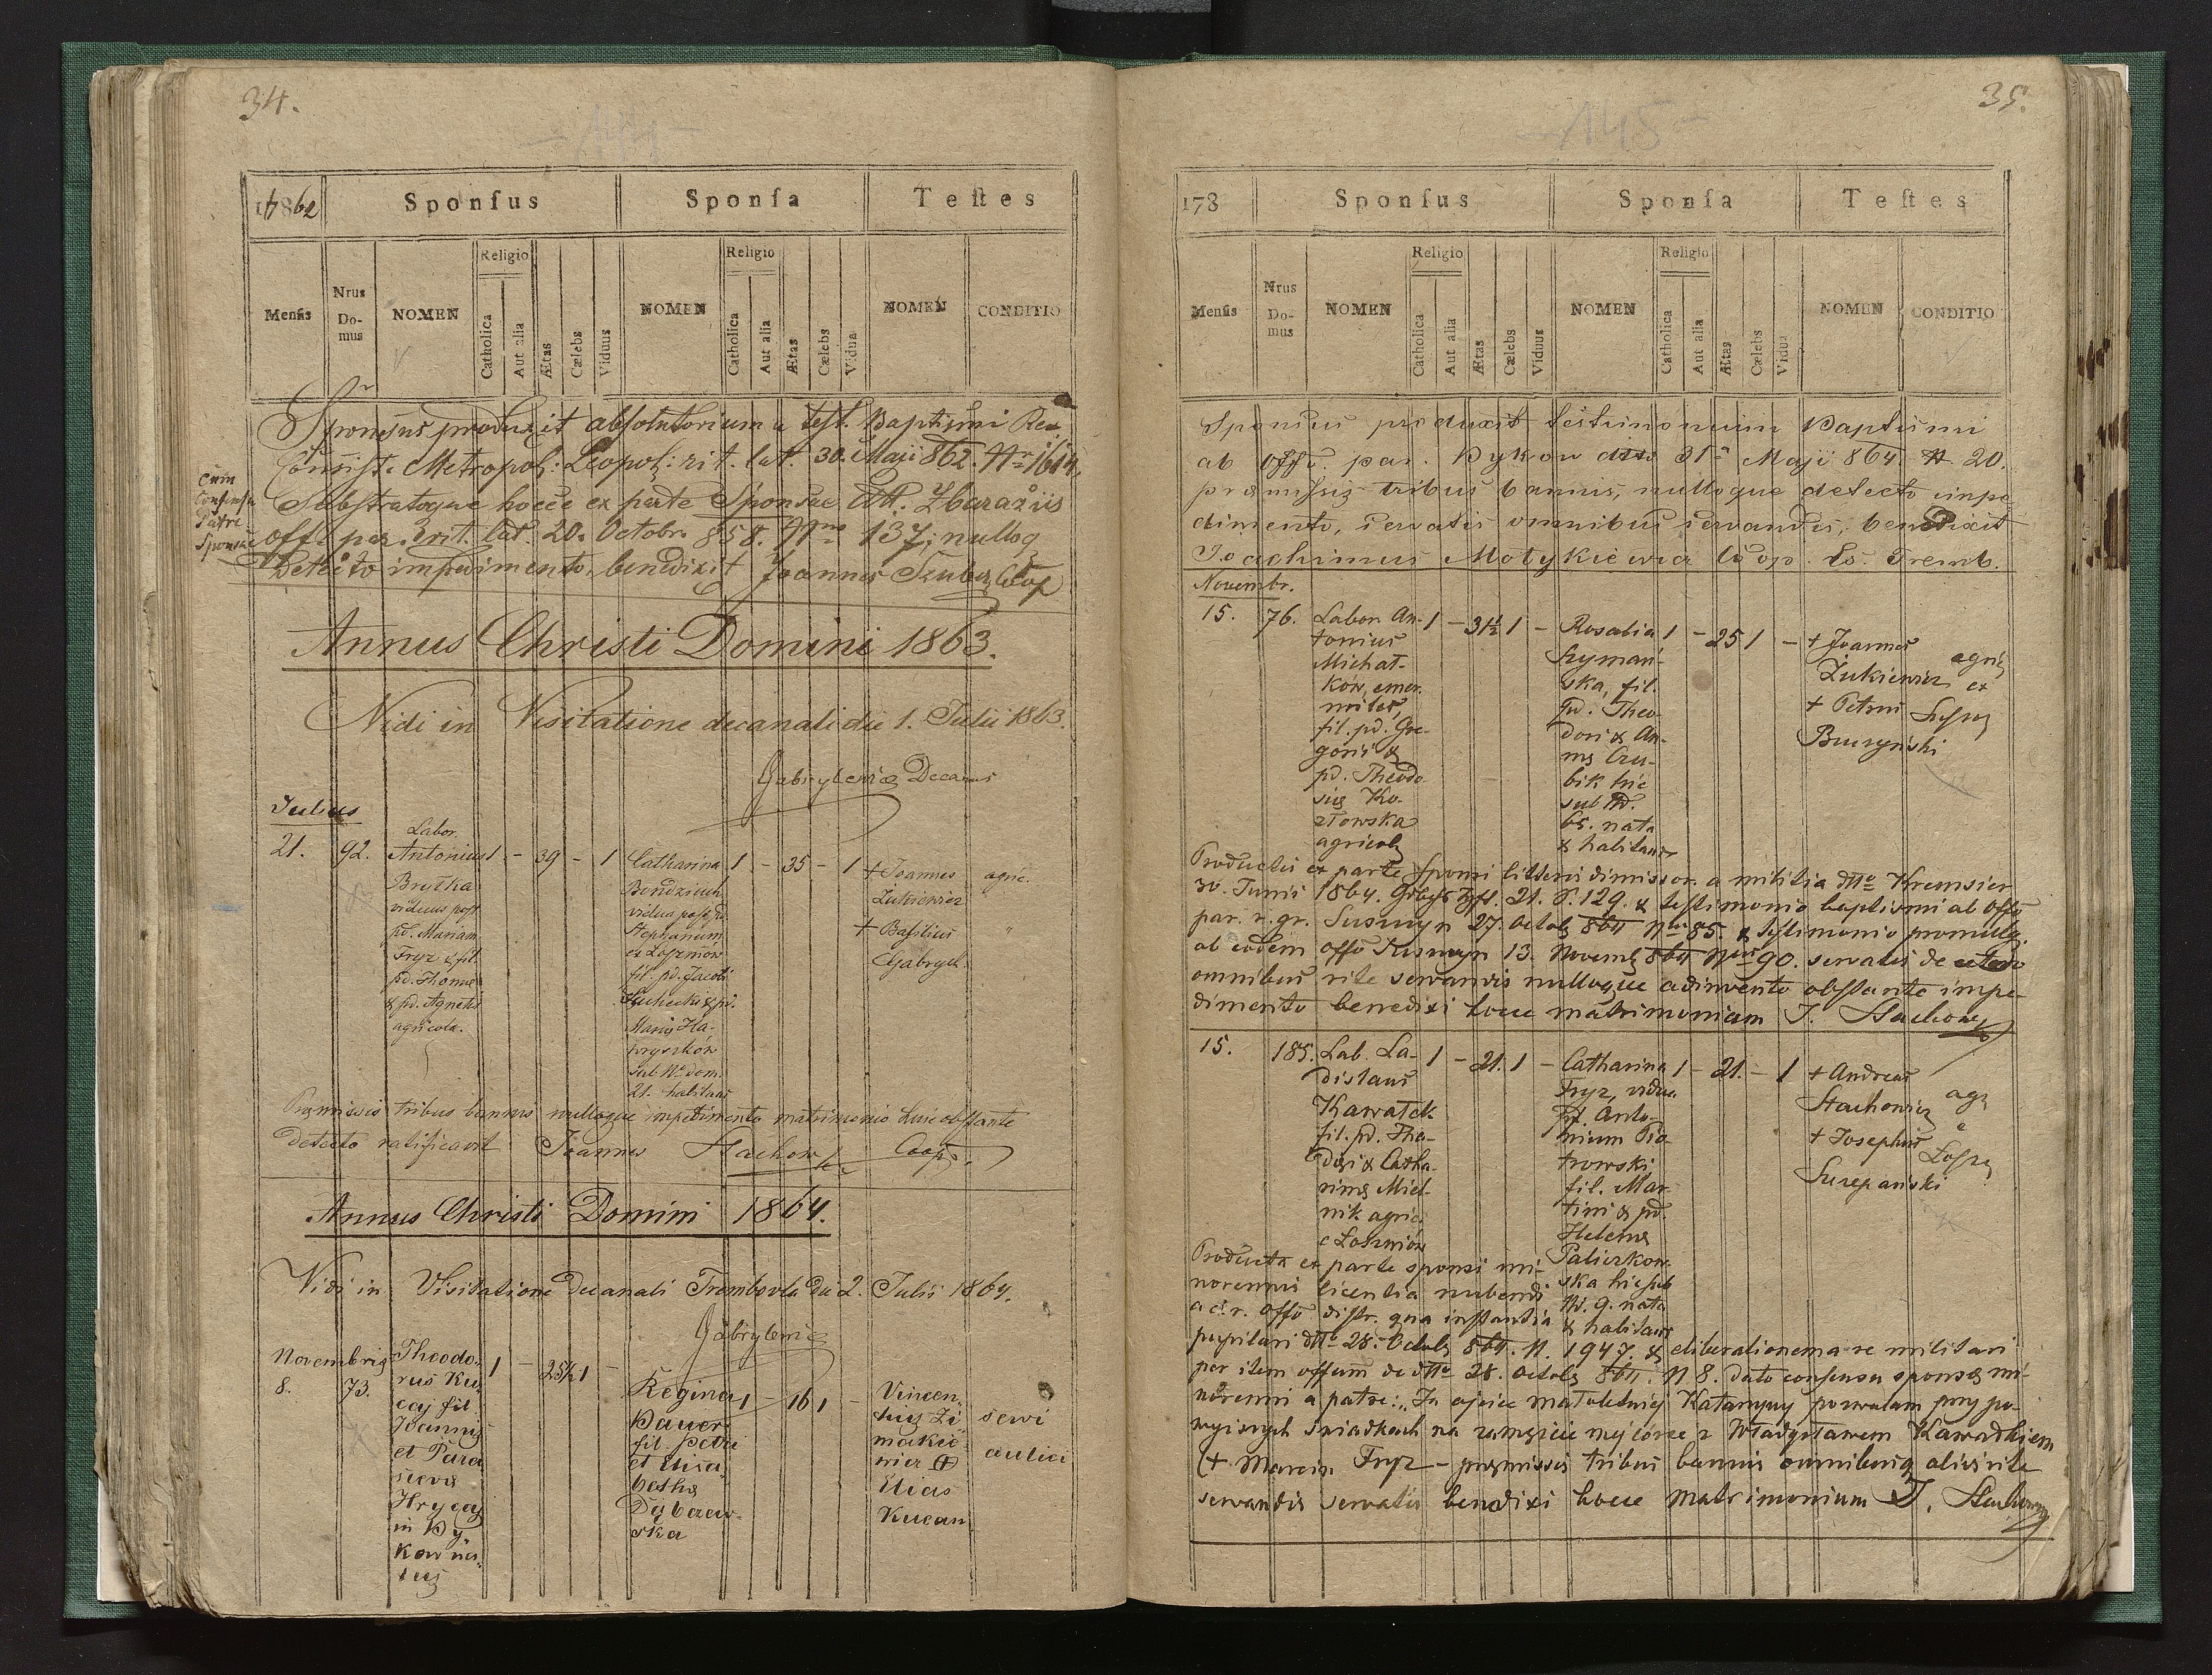 34.
1862 Sponsus Sponsa Testes
Mensis Nrus Domus NOMEN Religio Catholica Aut alia Ætas Cælebs Viduus NOMEN Religio Catholica Aut alia Ætas Cælebs Vidua NOMEN CONDITIO
Sponsus produxit absolutorium a test. Baptismi Rev.
Consist. Metropol: Leopol: rit. lat. 30. Maji 862. Nr 1614.
Cum
Consensu
Patre
Sponsae
Substratoque hocce ex parte Sponsae Zbarażiis
offo par. rit. lat. 20. Octobr. 858. Nro 137, nulloq
Detecto impedimento, benedixit Joannes Szuber Coop
Annus Christi Domini 1863.
Vidi in Visitatione decanali die 1. Julii 1863.
Gabrylewicz Decanus
Julius
21. 92.
Labor.
Antonius 1 - 39 - 1
Bryżka
viduus post
pd. Mariam
Fryz & fil.
pd. Thomae
& pd. Agnetis
agricola.
Catharina 1 - 35 - 1
Bondziuch
vidua post pd.
Stephanum
ex Łoszniów
fil. pd. Jacobi
Suchecki & pd.
Mariæ Ha-
wryszków
sub No dom.
21. habitans
+ Joannes agric.
Zukiewicz
+ Basilius "
Gabrych.
Præmissis tribus bannis nulloque impedimento matrimonio huic obstante
detecto ratificavit Joannes Stachowicz Coop.
Annus Christi Domini 1864.
Vidi in Visitatione Decanali Trembovlæ die 2. Julii 1864.
Gabrylewicz
Novembris
8. 73.
Theodo- 1 - 25½ 1
rus Ku-
caj fil.
Joannis
et Para
scevæ
Hrycaj
in By-
kow na-
tus
Regina 1 - 16 1 -
Bauer
fil. Petri
et Elisa-
bethæ
Dąbrow-
ska
Vincen-
tius Zi-
makie-
wicz (+)
Elias
Kucan
servi
aulici
35.
- 145 -
178 Sponsus Sponsa Testes
Mensis Nrus Domus NOMEN Religio Catholica Aut alia Ætas Cælebs Viduus NOMEN Religio Catholica Aut alia Ætas Cælebs Vidua NOMEN CONDITIO
Sponsus produxit testimonium Baptismi
ab offo. par. Bykow dtto 31a Maji 864. N. 20.
præmissis tribus bannis, nulloque detecto impe
dimento, servatis omnibus servandis, benedixit
Joachimus Motykiewicz Coop. Ls. Tremb.
Novembr.
15. 76.
Labor. An- 1 - 31½ 1 -
tonius
Michał-
ków, emer.
miles,
fil. pd. Gre-
gorii &
pd. Theodo
siæ Ko-
złowska
agricolæ
Rosalia 1 - 25 1 -
Szymań-
ska, fil.
pd. Theo-
dori & An-
næ Czu-
bik hic
sub N.
65. nata
& habitans
+ Joannes
Zukiewicz
+ Petrus
Buczyński
agric
ex
Łoszn
Productis ex parte sponsi litteris dimissor. a militia dtto Kremsier
30. Junii 1864. 21. S. 129. & testimonio baptismi ab offo
par. r. gr. Suszczyn 27. Octob 864 Nro 85 & testimonio promulg.
ab eodem offo Suszczyn 13. Novemb 864 Nro 90. servatis de cetero
omnibus rite servandis nulloque adinvento obstante impe-
dimento benedixi hocce matrimonium J. Stachowicz
15. 185.
Lab. La- 1 - 21. 1 -
dislaus
Kawałek
fil. pd. Tha-
dæi & Catha-
rinæ Miel-
nik agric.
e Łoszniów
Catharina 1 - 21. - 1
Fryz, vidua
pt. Anto-
nium Pio-
trowski
fil. Mar-
tini & pd.
Helenæ
Paliczkow-
ska hic sub
N. 9. nata
& habitans
+ Andreas
Stachowicz
+ Josephus
Szczepański
agr
e
Łoszn
Producta ex parte sponsi mi-
norennis licentia nubendi
a c. r. offo distr. qua instantia
pupilari dtto 28. Octob 864. N. 1947. & eliberationem a re militari
per idem offum de dtto 28. Octob 864. N 8. dato consensu sponsæ mi-
norenni a patre: „Ja ojciec małoletniej Katarzyny pozwalam przy po-
wyższych świadkach na zamęzcie mej córce z Władysławem Kawałkiem
(+ Marcin Fryz - præmissis tribus bannis omnibusq aliis rite
servandis servatis benedixi hocce matrimonium J. Stachowicz